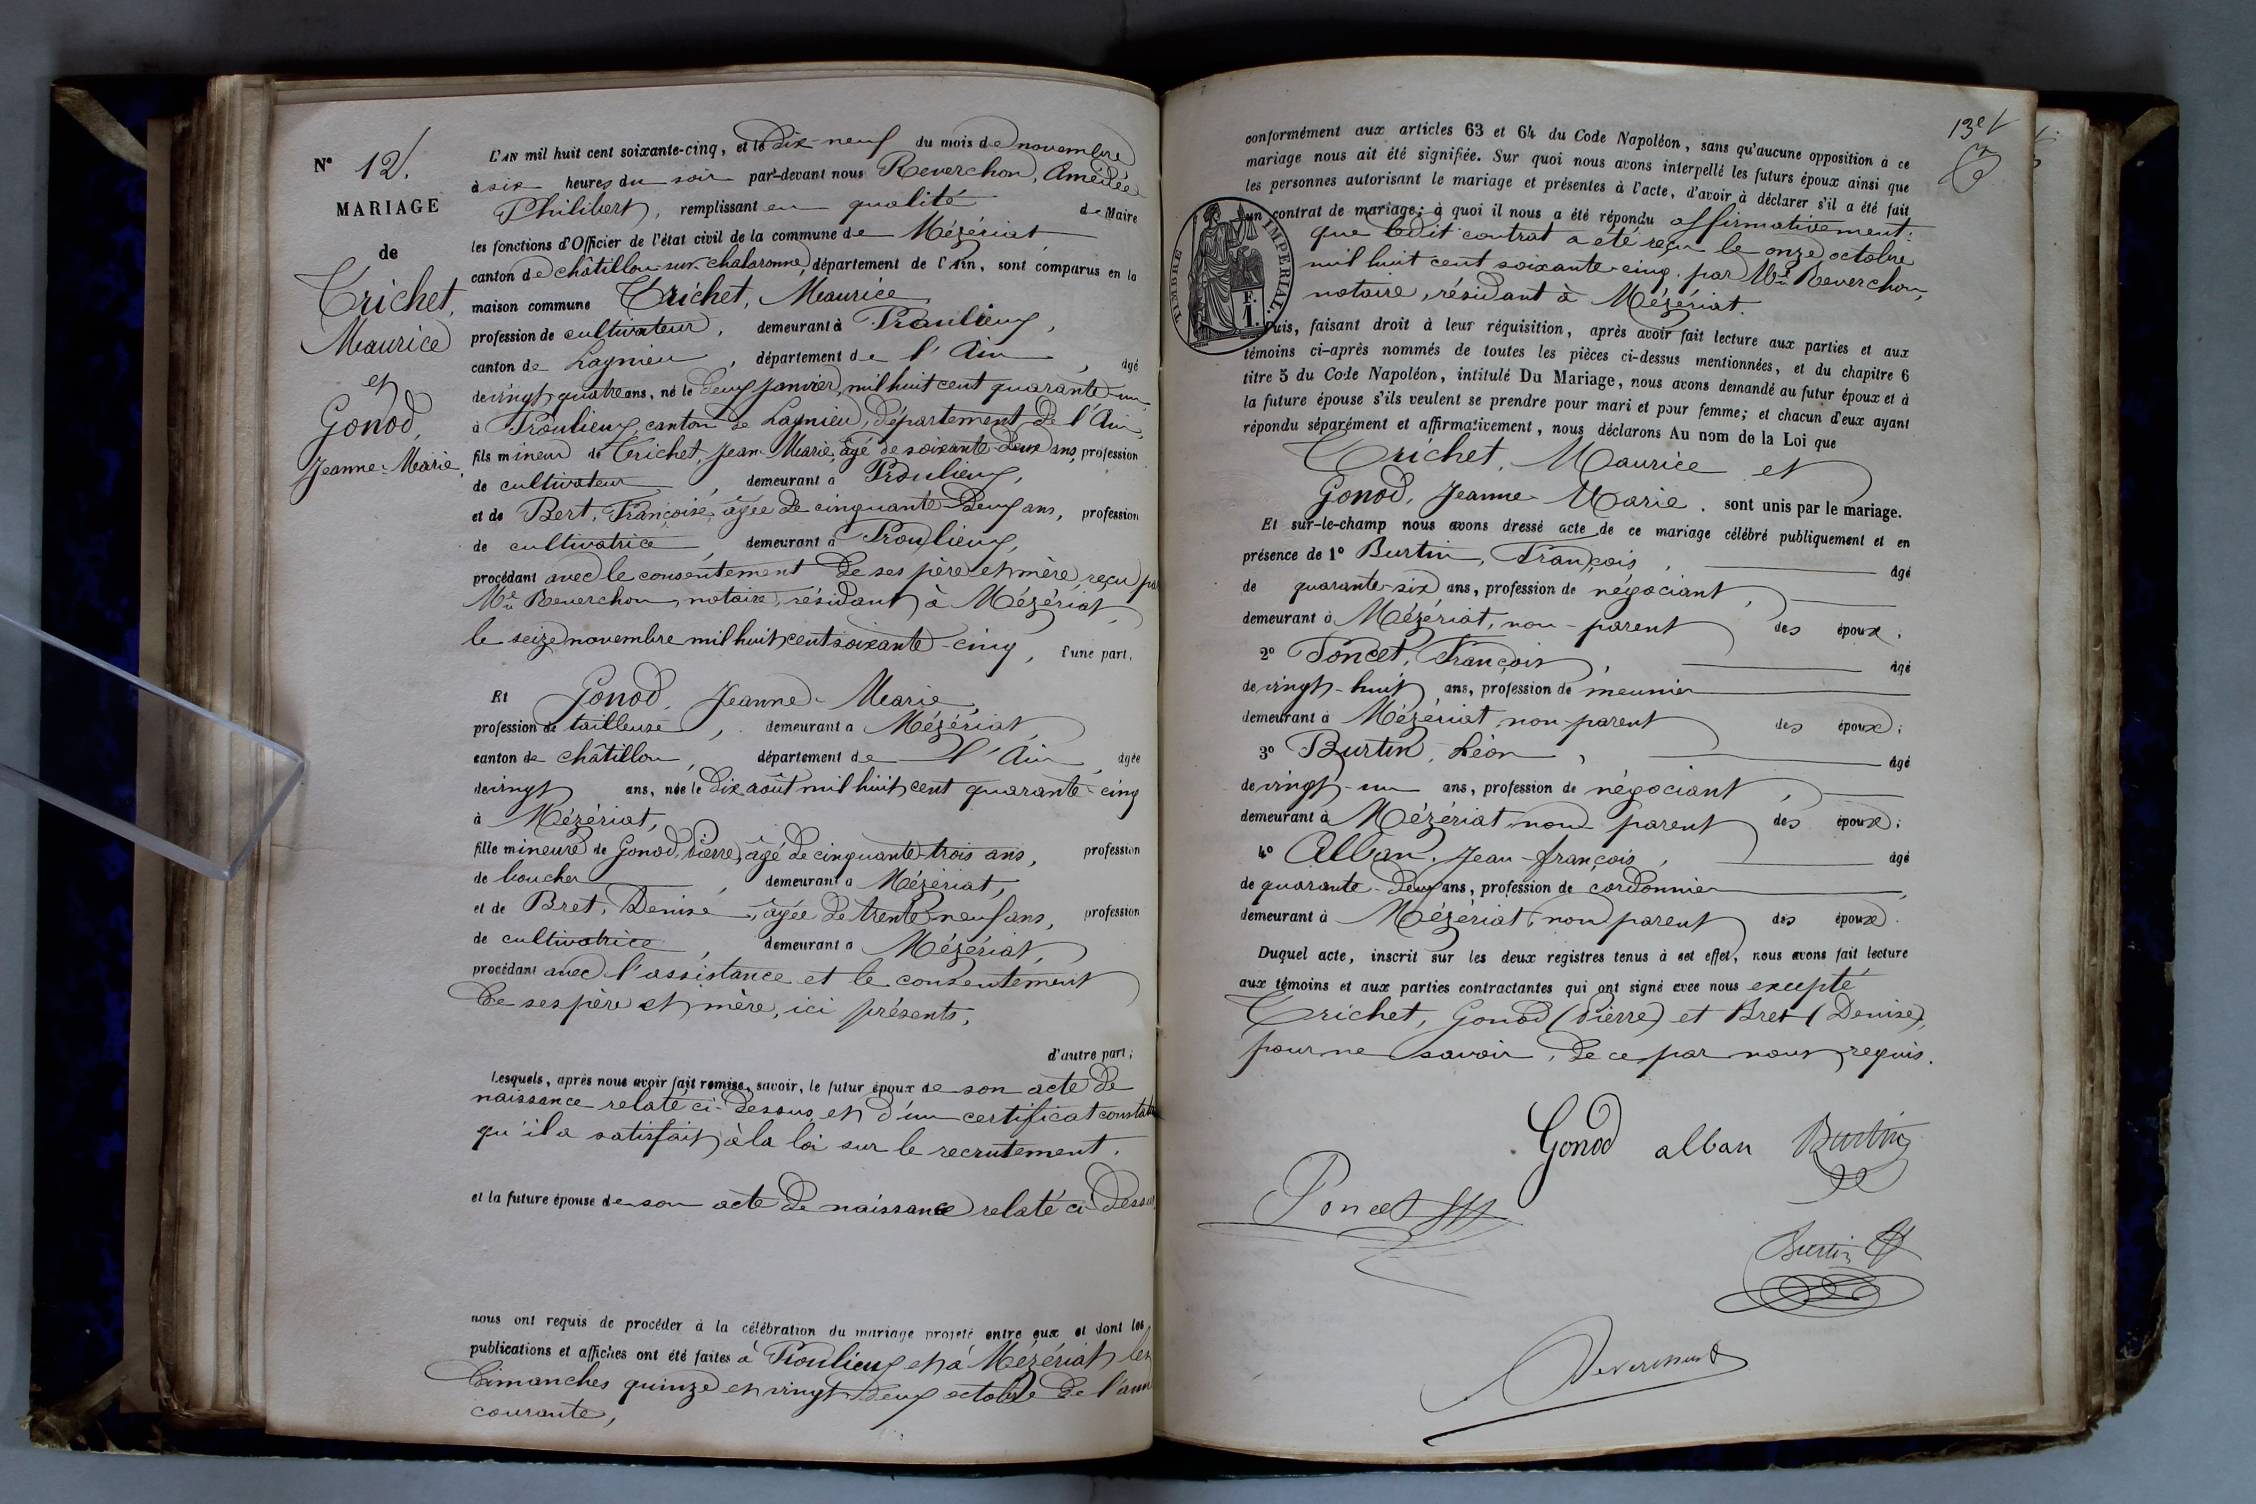 N° 12.
MARIAGE
de
Trichet,
Maurice
et
Gonod,
Jeanne-Marie.
L'AN mil huit cent soixante-cinq, et le dix-neuf du mois de novembre
à six heures du soir par-devant nous Reverchon, Amédée
Philibert, remplissant en qualité de Maire
les fonctions d'Officier de l'état civil de la commune de Mézériat,
canton de châtillon-sur-chalaronne, département de l'Ain, sont comparus en la
maison commune Trichet, Maurice,
profession de cultivateur, demeurant à Proulieux,
canton de Lagnieu, département de l'Ain, âgé
de vingt-quatre ans, né le deux Janvier mil huit cent quarante-un
à Proulieux, canton de Lagnieu, département de l'Ain,
fils mineur de Trichet, Jean-Marie, âgé de soixante-deux ans, profession
de cultivateur, demeurant à Proulieux,
et de Bert, Françoise, âgée de cinquante-deux ans, profession
de cultivatrice, demeurant à Proulieux,
procédant avec le consentement de ses père et mère, reçu par
Me Reverchon, notaire, résidant à Mézériat,
le seize novembre mil huit cent soixante-cinq, d'une part,
Et Gonod, Jeanne-Marie,
profession de tailleuse, demeurant à Mézériat,
canton de châtillon, département de l'Ain, âgée
de vingt ans, née le dix août mil huit cent quarante-cinq
à Mézériat,
fille mineure de Gonod, Pierre, âgé de cinquante-trois ans, profession
de boucher, demeurant à Mézériat,
et de Bret, Denise, âgée de trente-neuf ans, profession
de cultivatrice, demeurant à Mézériat,
procédant avec l'assistance et le consentement
de ses père et mère, ici présents,
d'autre part;
Lesquels, après nous avoir fait remise, savoir, le futur époux de son acte de
naissance relaté ci-dessus et d'un certificat constatant
qu'il a satisfait à la loi sur le recrutement.
et la future épouse de son acte de naissance relaté ci-dessus
nous ont requis de procéder à la célébration du mariage projeté entre eux et dont les
publications et affiches ont été faites à Proulieux et à Mézériat les
dimanches quinze et vingt-deux octobre de l'année
courante,
13e
conformément aux articles 63 et 64 du Code Napoléon, sans qu'aucune opposition à ce
mariage nous ait été signifiée. Sur quoi nous avons interpellé les futurs époux ainsi que
les personnes autorisant le mariage et présentes à l'acte, d'avoir à déclarer s'il a été fait
un contrat de mariage; à quoi il nous a été répondu affirmativement:
que ledit contrat a été reçu le onze octobre
mil huit cent soixante-cinq par Me Reverchon,
notaire, résidant à Mézériat.
TIMBRE IMPERIAL.
F.
1.
Puis, faisant droit à leur réquisition, après avoir fait lecture aux parties et aux
témoins ci-après nommés de toutes les pièces ci-dessus mentionnées, et du chapitre 6
titre 5 du Code Napoléon, intitulé Du Mariage, nous avons demandé au futur époux et à
la future épouse s'ils veulent se prendre pour mari et pour femme; et chacun d'eux ayant
répondu séparément et affirmativement, nous déclarons Au nom de la Loi que
Trichet, Maurice et
Gonod, Jeanne-Marie. sont unis par le mariage.
Et sur-le-champ nous avons dressé acte de ce mariage célébré publiquement et en
présence de 1° Burtin, François, âgé
de quarante-six ans, profession de négociant,
demeurant à Mézériat, non-parent des époux.
2° Poncet, François, âgé
de vingt-huit ans, profession de meunier
demeurant à Mézériat, non-parent des époux;
3° Burtin, Léon, âgé
de vingt-un ans, profession de négociant,
demeurant à Mézériat, non parent des époux;
4° Alban, Jean-françois, âgé
de quarante-deux ans, profession de cordonnier,
demeurant à Mézériat, non parent des époux.
Duquel acte, inscrit sur les deux registres tenus à cet effet, nous avons fait lecture
aux témoins et aux parties contractantes qui ont signé avec nous excepté
Trichet, Gonod (Pierre) et Bret (Denise),
pour ne savoir, de ce par nous requis.
Gonod alban Burtin
Poncet
Burtin
Reverchon